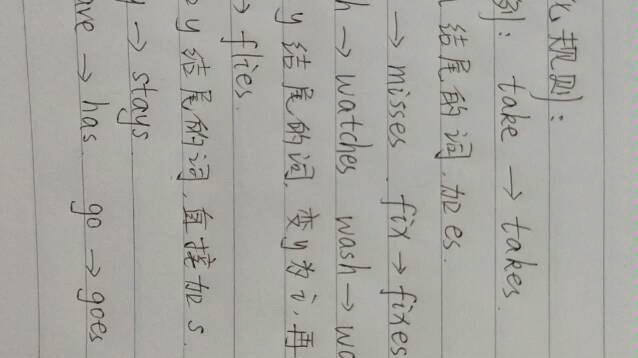 规则:
例: take → takes.
结尾的词,加es.
→ misses. fix → fixes
→ watches wash →
y 结尾的词,变y为i,再
→ flies.
y 结尾的词,直接加s.
→ stays
→ has go → goes